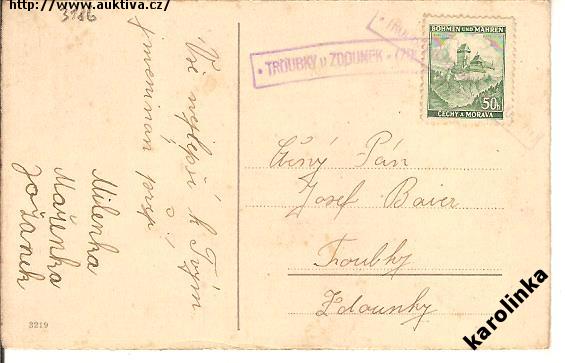 http://www.auktiva.cz/
3186
Vše nejlepší k Tvým
jmeninám přejí
Milenka
Mařenka
Jožánek
TROUBKY u ZDOUNEK
BÖHMEN UND MÄHREN
50h
ČECHY A MORAVA
Ctěný Pán
Josef Baier
Troubky
Zdounky
3219
karolinka